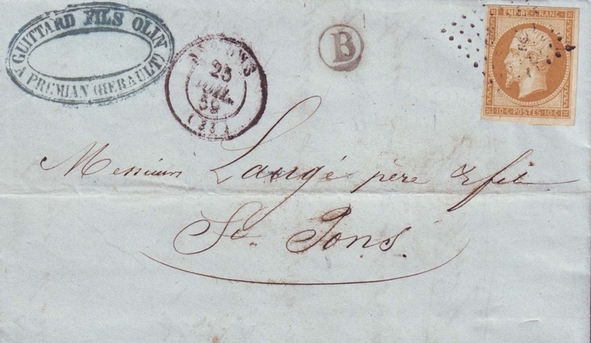 GUITTARD FILS OLIN
A PREMIAN (HERAULT)
ST PONS
25
JUIL.
59
(33)
B
EMPIRE FRANC
10 C. POSTES 10 C.
Messieurs Laugé père & fils
St. Pons.